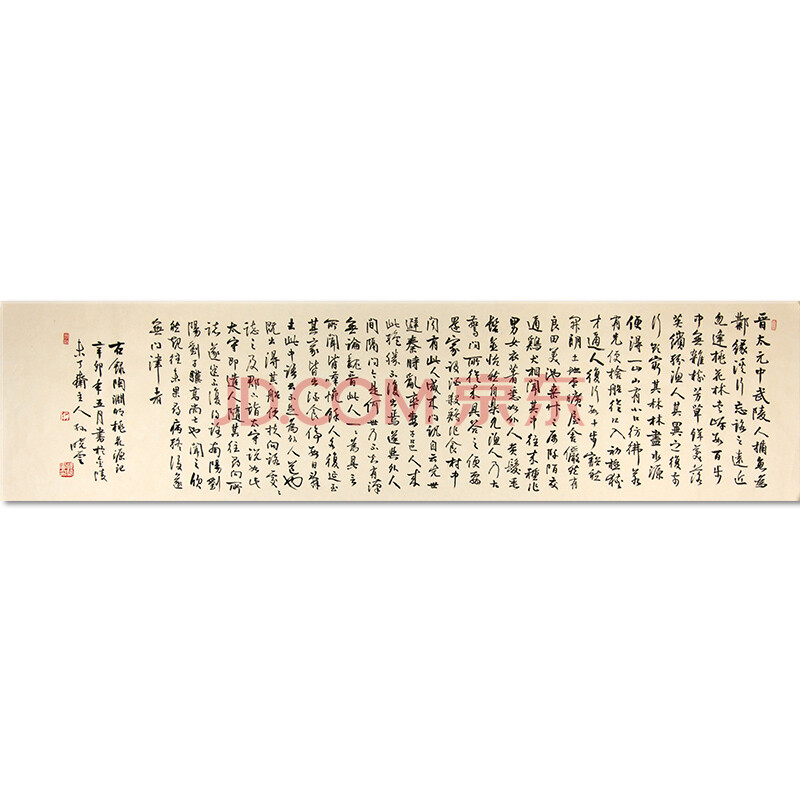 晉太元中武陵人捕魚為業
緣溪行忘路之遠近
忽逢桃花林夾岸數百步
中無雜樹芳草鮮美落
英繽紛漁人甚異之復前
行欲窮其林林盡水源
便得一山山有小口彷彿若
有光便捨船從口入初極狹
才通人復行數十步豁然
開朗土地平曠屋舍儼然有
良田美池桑竹之屬阡陌交
通鷄犬相聞其中往來種作
男女衣著悉如外人黃髮垂
髫並怡然自樂見漁人乃大
驚問所從來具答之便要
還家設酒殺鷄作食村中
聞有此人咸來問訊自云先世
避秦時亂率妻子邑人來
此絕境不復出焉遂與外人
間隔問今是何世乃不知有漢
無論魏晉此人一一為具言
所聞皆嘆惋餘人各復延至
其家皆出酒食停數日辭
去此中人語云不足為外人道也
既出得其船便扶向路處處
誌之及郡下詣太守說如此
太守即遣人隨其往尋向所
誌遂迷不復得路南陽劉
子驥高尚士也聞之欣
然規往未果尋病終後遂
無問津者
右錄陶淵明桃花源記
辛卯年五月書於金陵
未丁齋主人
JD.COM 京东